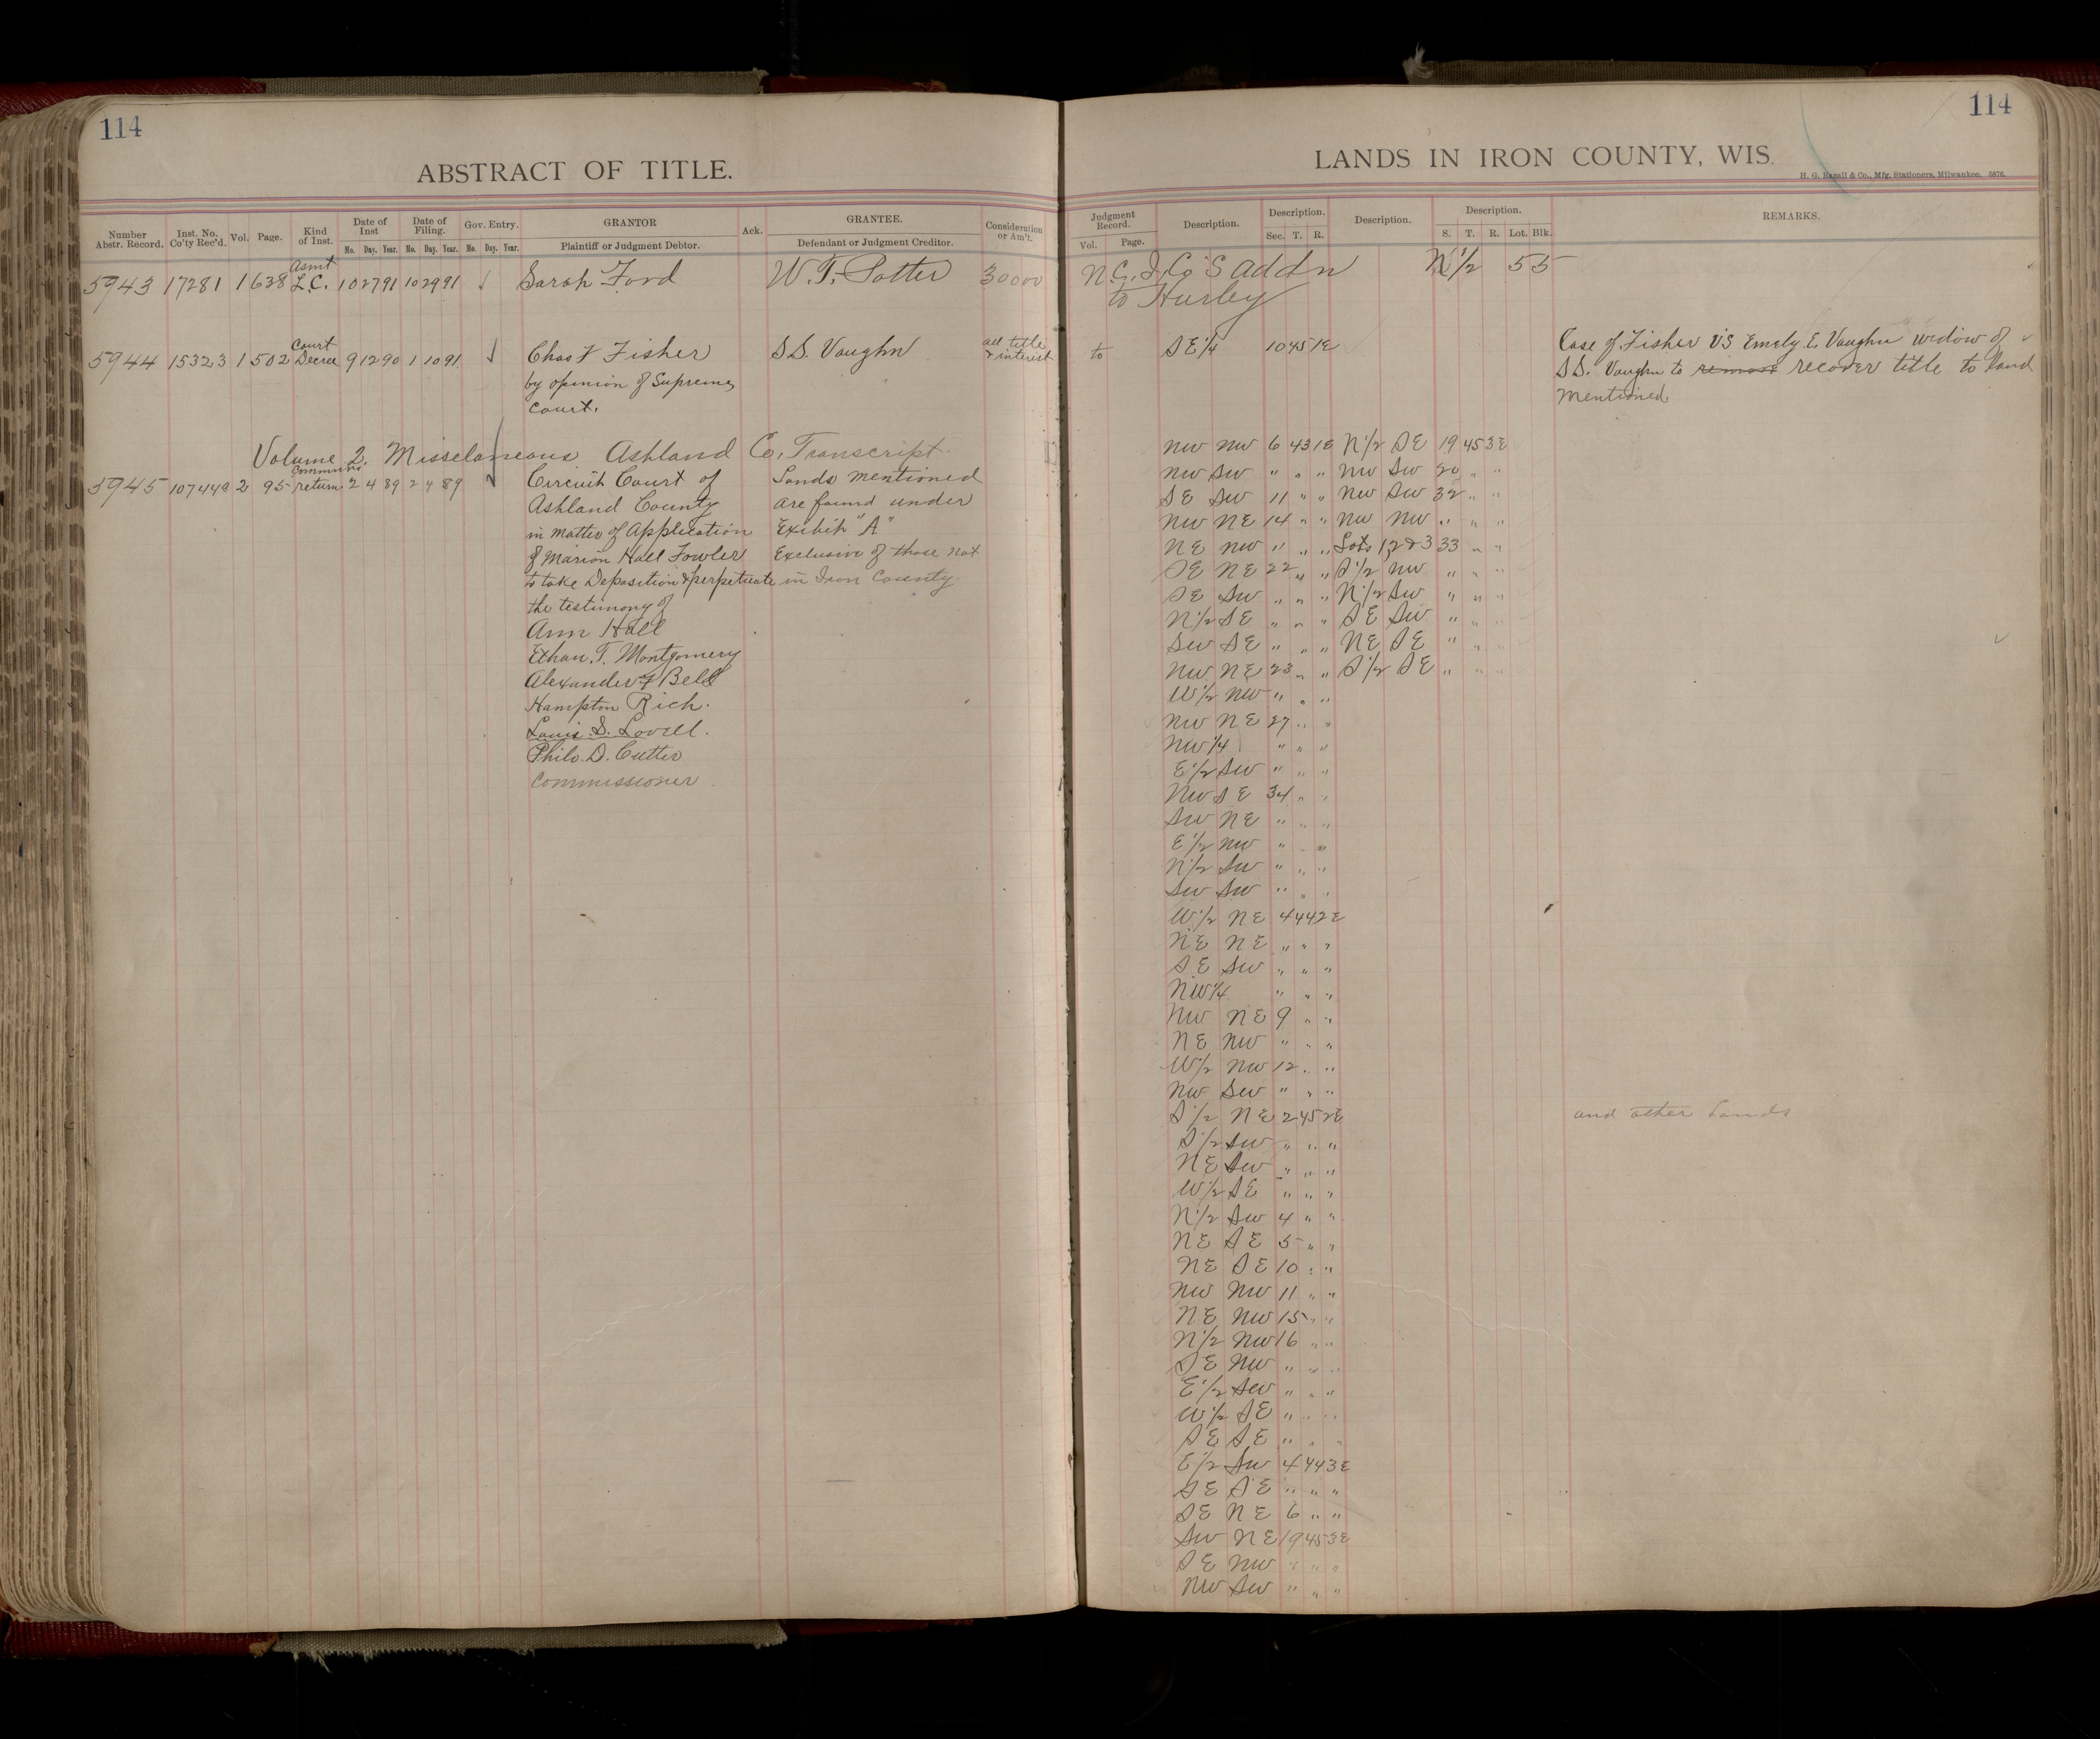 114
ABSTRACT OF TITLE.
Number Abstr. Record. Inst. No. Co'ty Rec'd. Vol. Page. Kind of Inst. Date of Inst Mo. Day. Year. Date of Filing. Mo. Day. Year. Gov. Entry. Mo. Day. Year. GRANTOR Plaintiff or Judgment Debtor. Ack. GRANTEE. Defendant or Judgment Creditor. Consideration or Am't.
Asmt
5943 17281 1 638 L.C. 10 27 91 10 29 91 Sarah Ford W. T. Potter 300 00
Court all title
5944 15323 1 502 Decree 9 12 90 1 10 91 Chas F Fisher S.S. Vaughn & interest
by opinion of Supreme
Court.
Volume 2. Misselaneous Ashland Co. Transcript.
5945 2 95 return 2 4 89 2 4 89 Circuit Court of Lands mentioned
Ashland County are found under
in matter of Application Exibit "A"
of Marion Hall Fowler Exclusive of those not
to take Deposition & perpetuate in Iron County.
the testimony of
Ann Hall
Ethan. T. Montgomery
Alexander F Bell
Hampton Rich.
Louis. S. Lovell.
Philo. D. Cutter
Commissioner
114
LANDS IN IRON COUNTY, WIS.
H. G. Razall & Co., Mfg. Stationers, Milwaukee. 5876.
Judgment Record. Vol. Page. Description. Description. Sec. T. R. Description. Description. S. T. R. Lot. Blk. REMARKS.
N. C. I. Co's Addn N 1/2 5 5
to Hurley
to SE 1/4 10 45 1E Case of Fisher VS Emely E. Vaughn widow of
S.S. Vaughn to recover title to land
mentioned
NW NW 6 43 1E N 1/2 SE 19 45 3E
NW SW " " " NW SW 20 " "
SE SW 11 " " NW SW 32 " "
NW NE 14 " " NW NW " " "
NE NW " " " Lots 1,2 & 3 33 " "
SE NE 22 " " S 1/2 NW " " "
SE SW " " " N 1/2 SW " " "
N 1/2 SE " " " SE SW " " "
SW SE " " " NE SE " " "
NW NE 23 " " S 1/2 SE " " "
W 1/2 NW " " "
NW NE 27 " "
NW 1/4 " " "
E 1/2 SW " " "
NW SE 34 " "
SW NE " " "
E 1/2 NW " " "
N 1/2 SW " " "
SW SW " " "
W 1/2 NE 4 44 2E
NE NE " " "
SE SW " " "
NW 1/4 " " "
NW NE 9 " "
NE NW " " "
W 1/2 NW 12 " "
NW SW " " "
S 1/2 NE 2 45 2E and other Lands
S 1/2 SW " " "
NE SW " " "
W 1/2 SE " " "
N 1/2 SW 4 " "
NE SE 5 " "
NE SE 10 " "
NW NW 11 " "
NE NW 15 " "
N 1/2 NW 16 " "
SE NW " " "
E 1/2 SW " " "
W 1/2 SE " " "
SE SE " " "
E 1/2 SW 4 44 3E
SE SE " " "
SE NE 6 " "
SW NE 19 45 3E
SE NW " " "
NW SW " " "